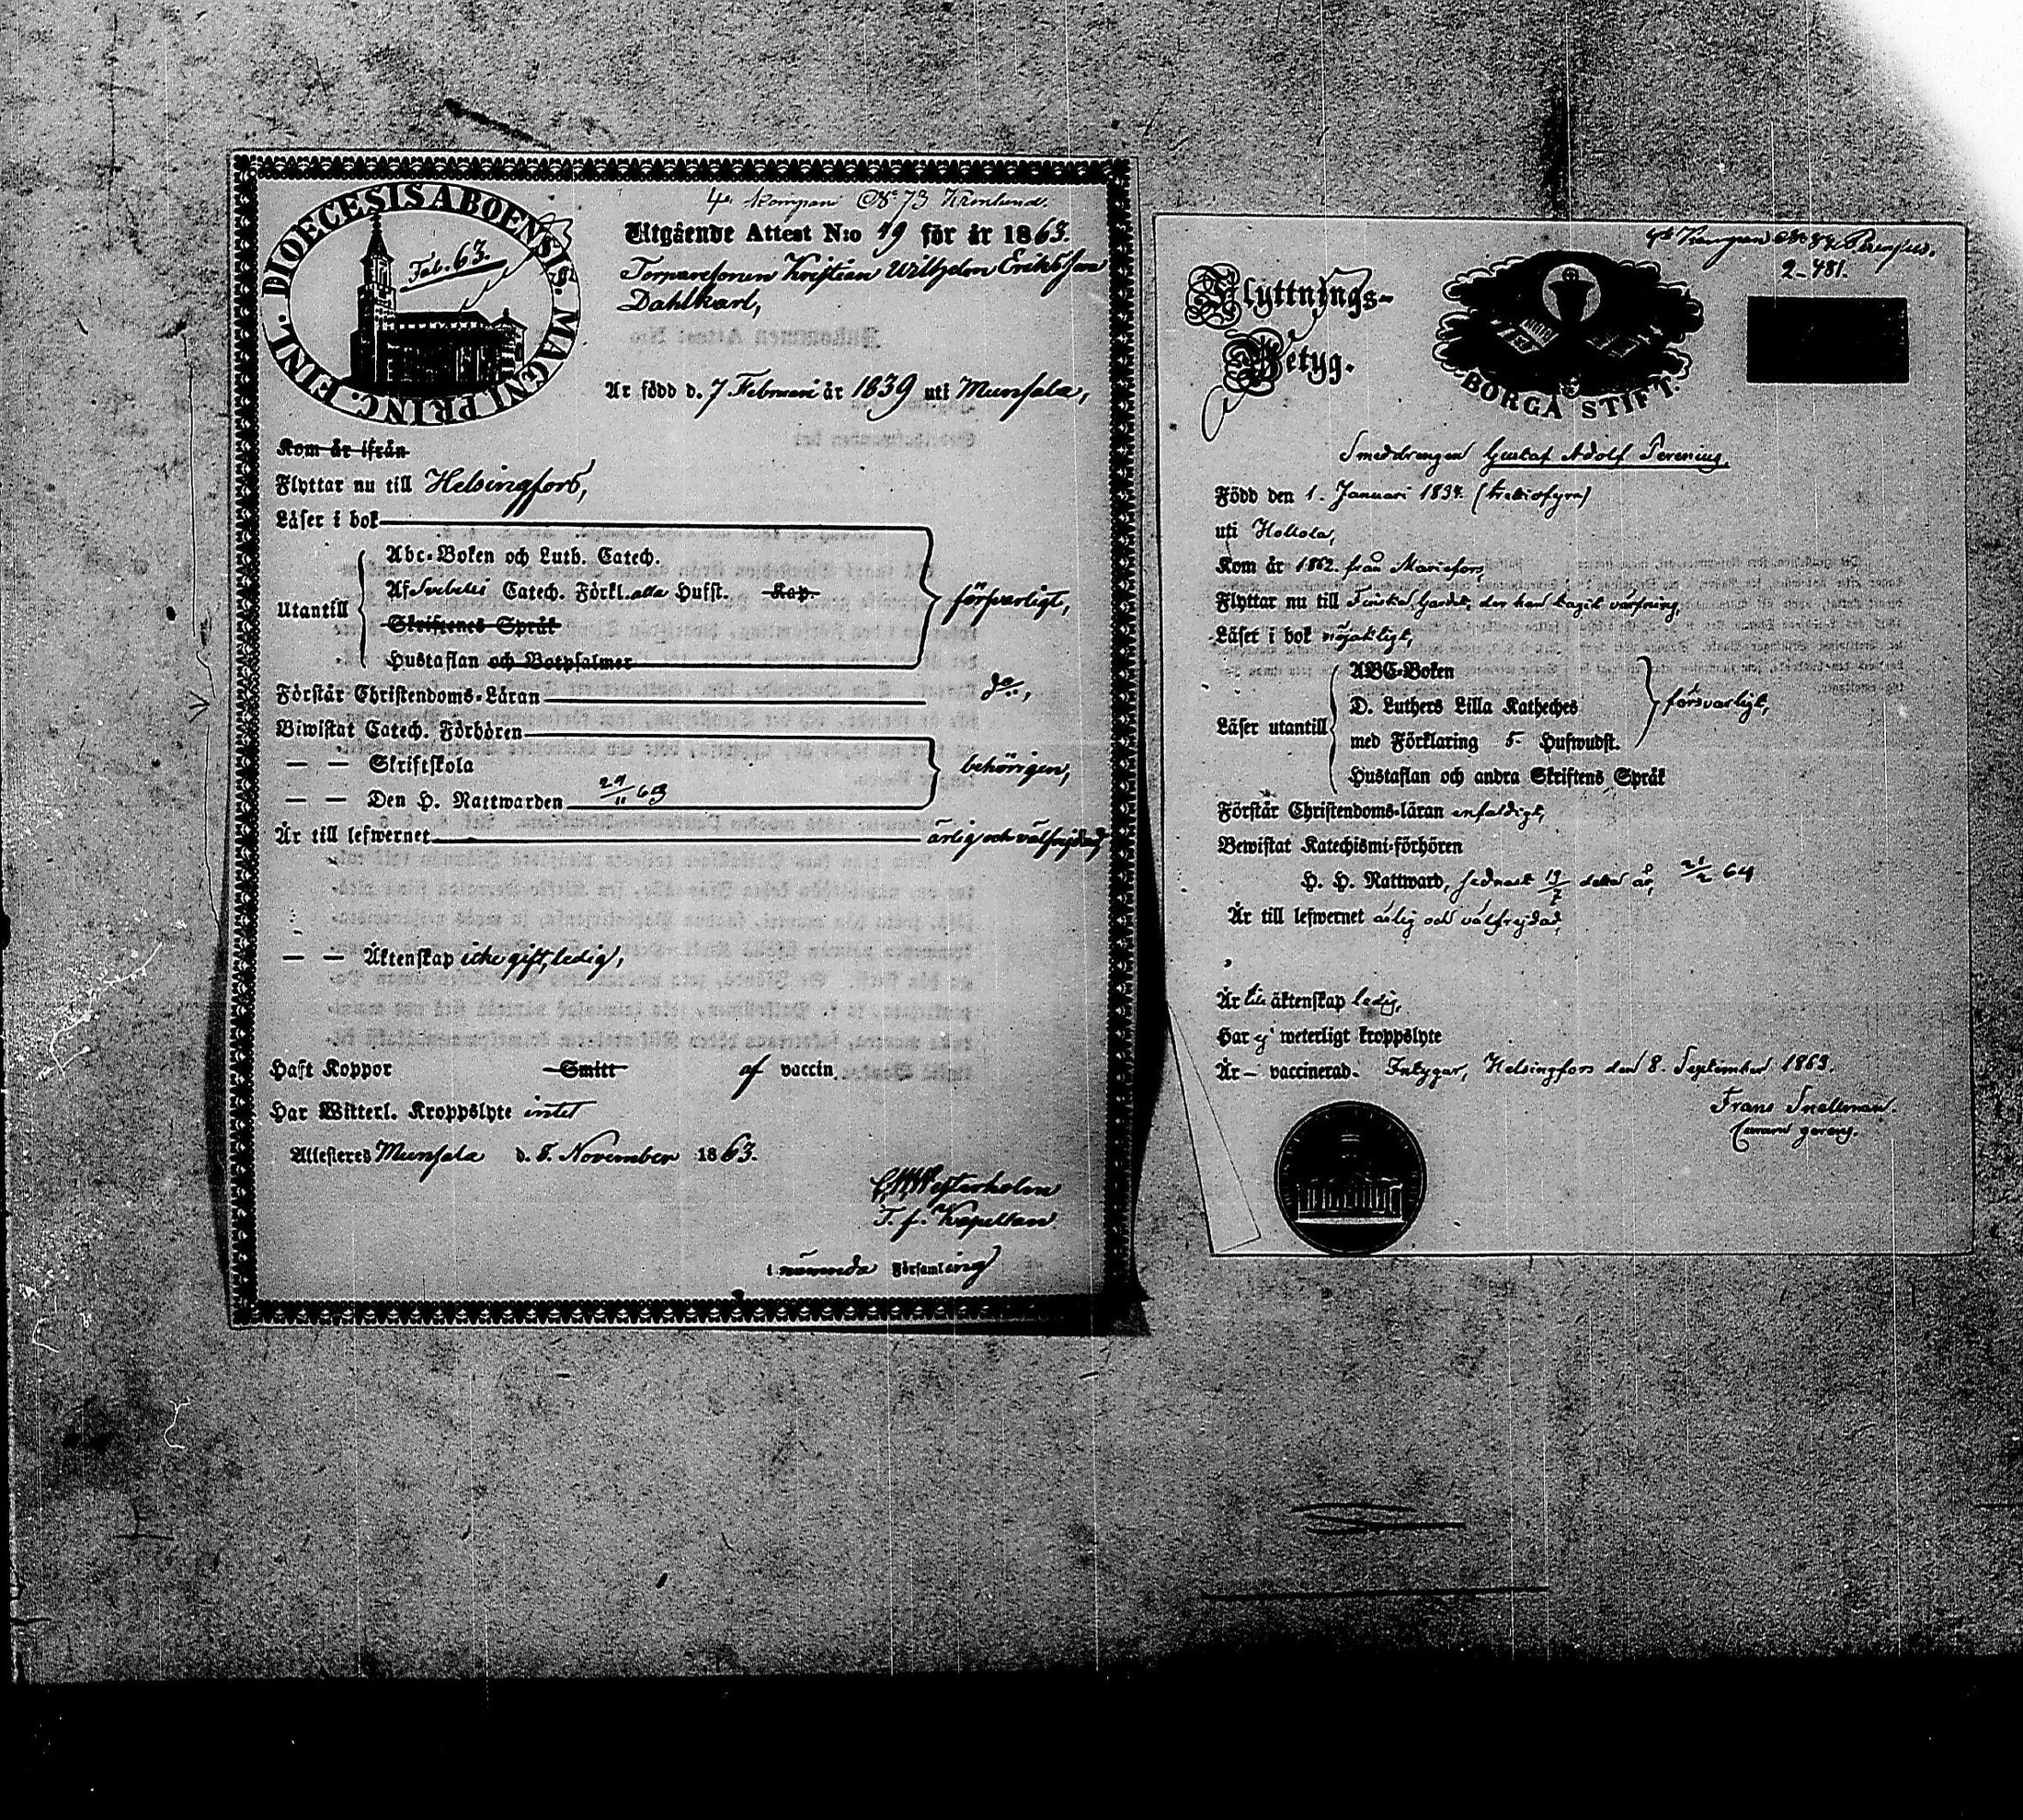 DIOECESIS ABOENSIS. MAGNI PRINC. FINL.
Feb. 63.
4e Kompani No 73 Kronlund.
Utgående Attest N:o 49 för år 1863.
Torparesonen Kristian Wilhelm Eriksson
Dahlkarl,
Är född d. 7 Februari år 1839 uti Munsala,
Kom år ifrån
Flyttar nu till Helsingfors,
Läser i bok
Utantill
Abc-Boken och Luth. Catech.
Af Svebelii Catech. Förkl. alla Hufst. Kap.
Skriftenes Språk
Hustaflan och Botpsalmer
försvarligt,
Förstår Christendoms-Läran do,
Biwistat Catech. Förhören
— — Skriftskola
— — Den H. Nattwarden 29/11 63
behörigen,
Är till lefwernet ärlig och välfrejdad,
— — Äktenskap icke gift, ledig,
Haft Koppor Smitt af vaccin.
Har Witterl. Kroppslyte intet
Attesteres Munsala d. 8. November 1863.
Westerholm
T. f. Kapellan
i nämnda Församling
4de Kompani No 82 Perenius.
2-481.
Flyttnings-
Betyg.
BORGÅ STIFT.
Smeddrengen Gustaf Adolf Perenius,
Född den 1. Januari 1834. (trettiofyra)
uti Hollola,
Kom år 1862. från Mariefors,
Flyttar nu till Finska Gardet, der han tagit värfning,
Läser i bok nöjaktligt,
Läser utantill
ABC-Boken
D. Luthers Lilla Katheches
med Förklaring 5 Hufwudst.
Hustaflan och andra Skriftens Språk
försvarligt,
Förstår Christendoms-läran enfaldigt,
Bewistat Katechismi-förhören
H. H. Nattward, sednast 19/7 detta år, 21/2 64
Är till lefwernet ärlig och välfrejdad,
Är till äktenskap ledig,
Har ej weterligt kroppslyte
Är — vaccinerad. Intygar, Helsingfors den 8. September 1863.
Frans Snellman.